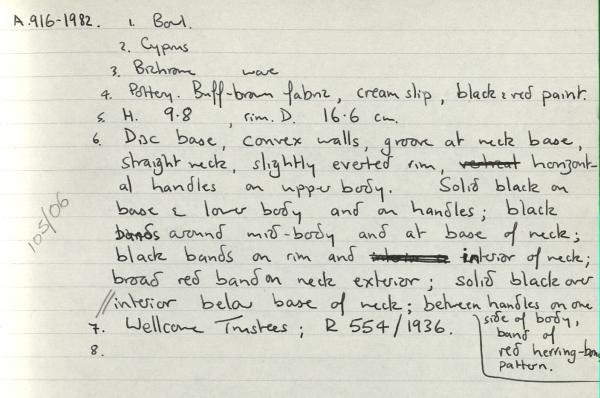 A.916-1982. 1. Bowl.
2. Cyprus
3. Bichrome ware
4. Pottery. Buff-brown fabric, cream slip, black & red paint.
5. H. 9.8 , rim. D. 16.6 cm.
6. Disc base, convex walls, groove at neck base,
straight neck, slightly everted rim, horizont-
al handles on upper body. Solid black on
base & lower body and on handles; black
bands around mid-body and at base of neck;
black bands on rim and interior of neck;
broad red band on neck exterior; solid black over
//interior below base of neck; between handles on one
side of body,
band of
red herring-bone
pattern.
7. Wellcome Trustees; R 554/1936.
8.
105/06